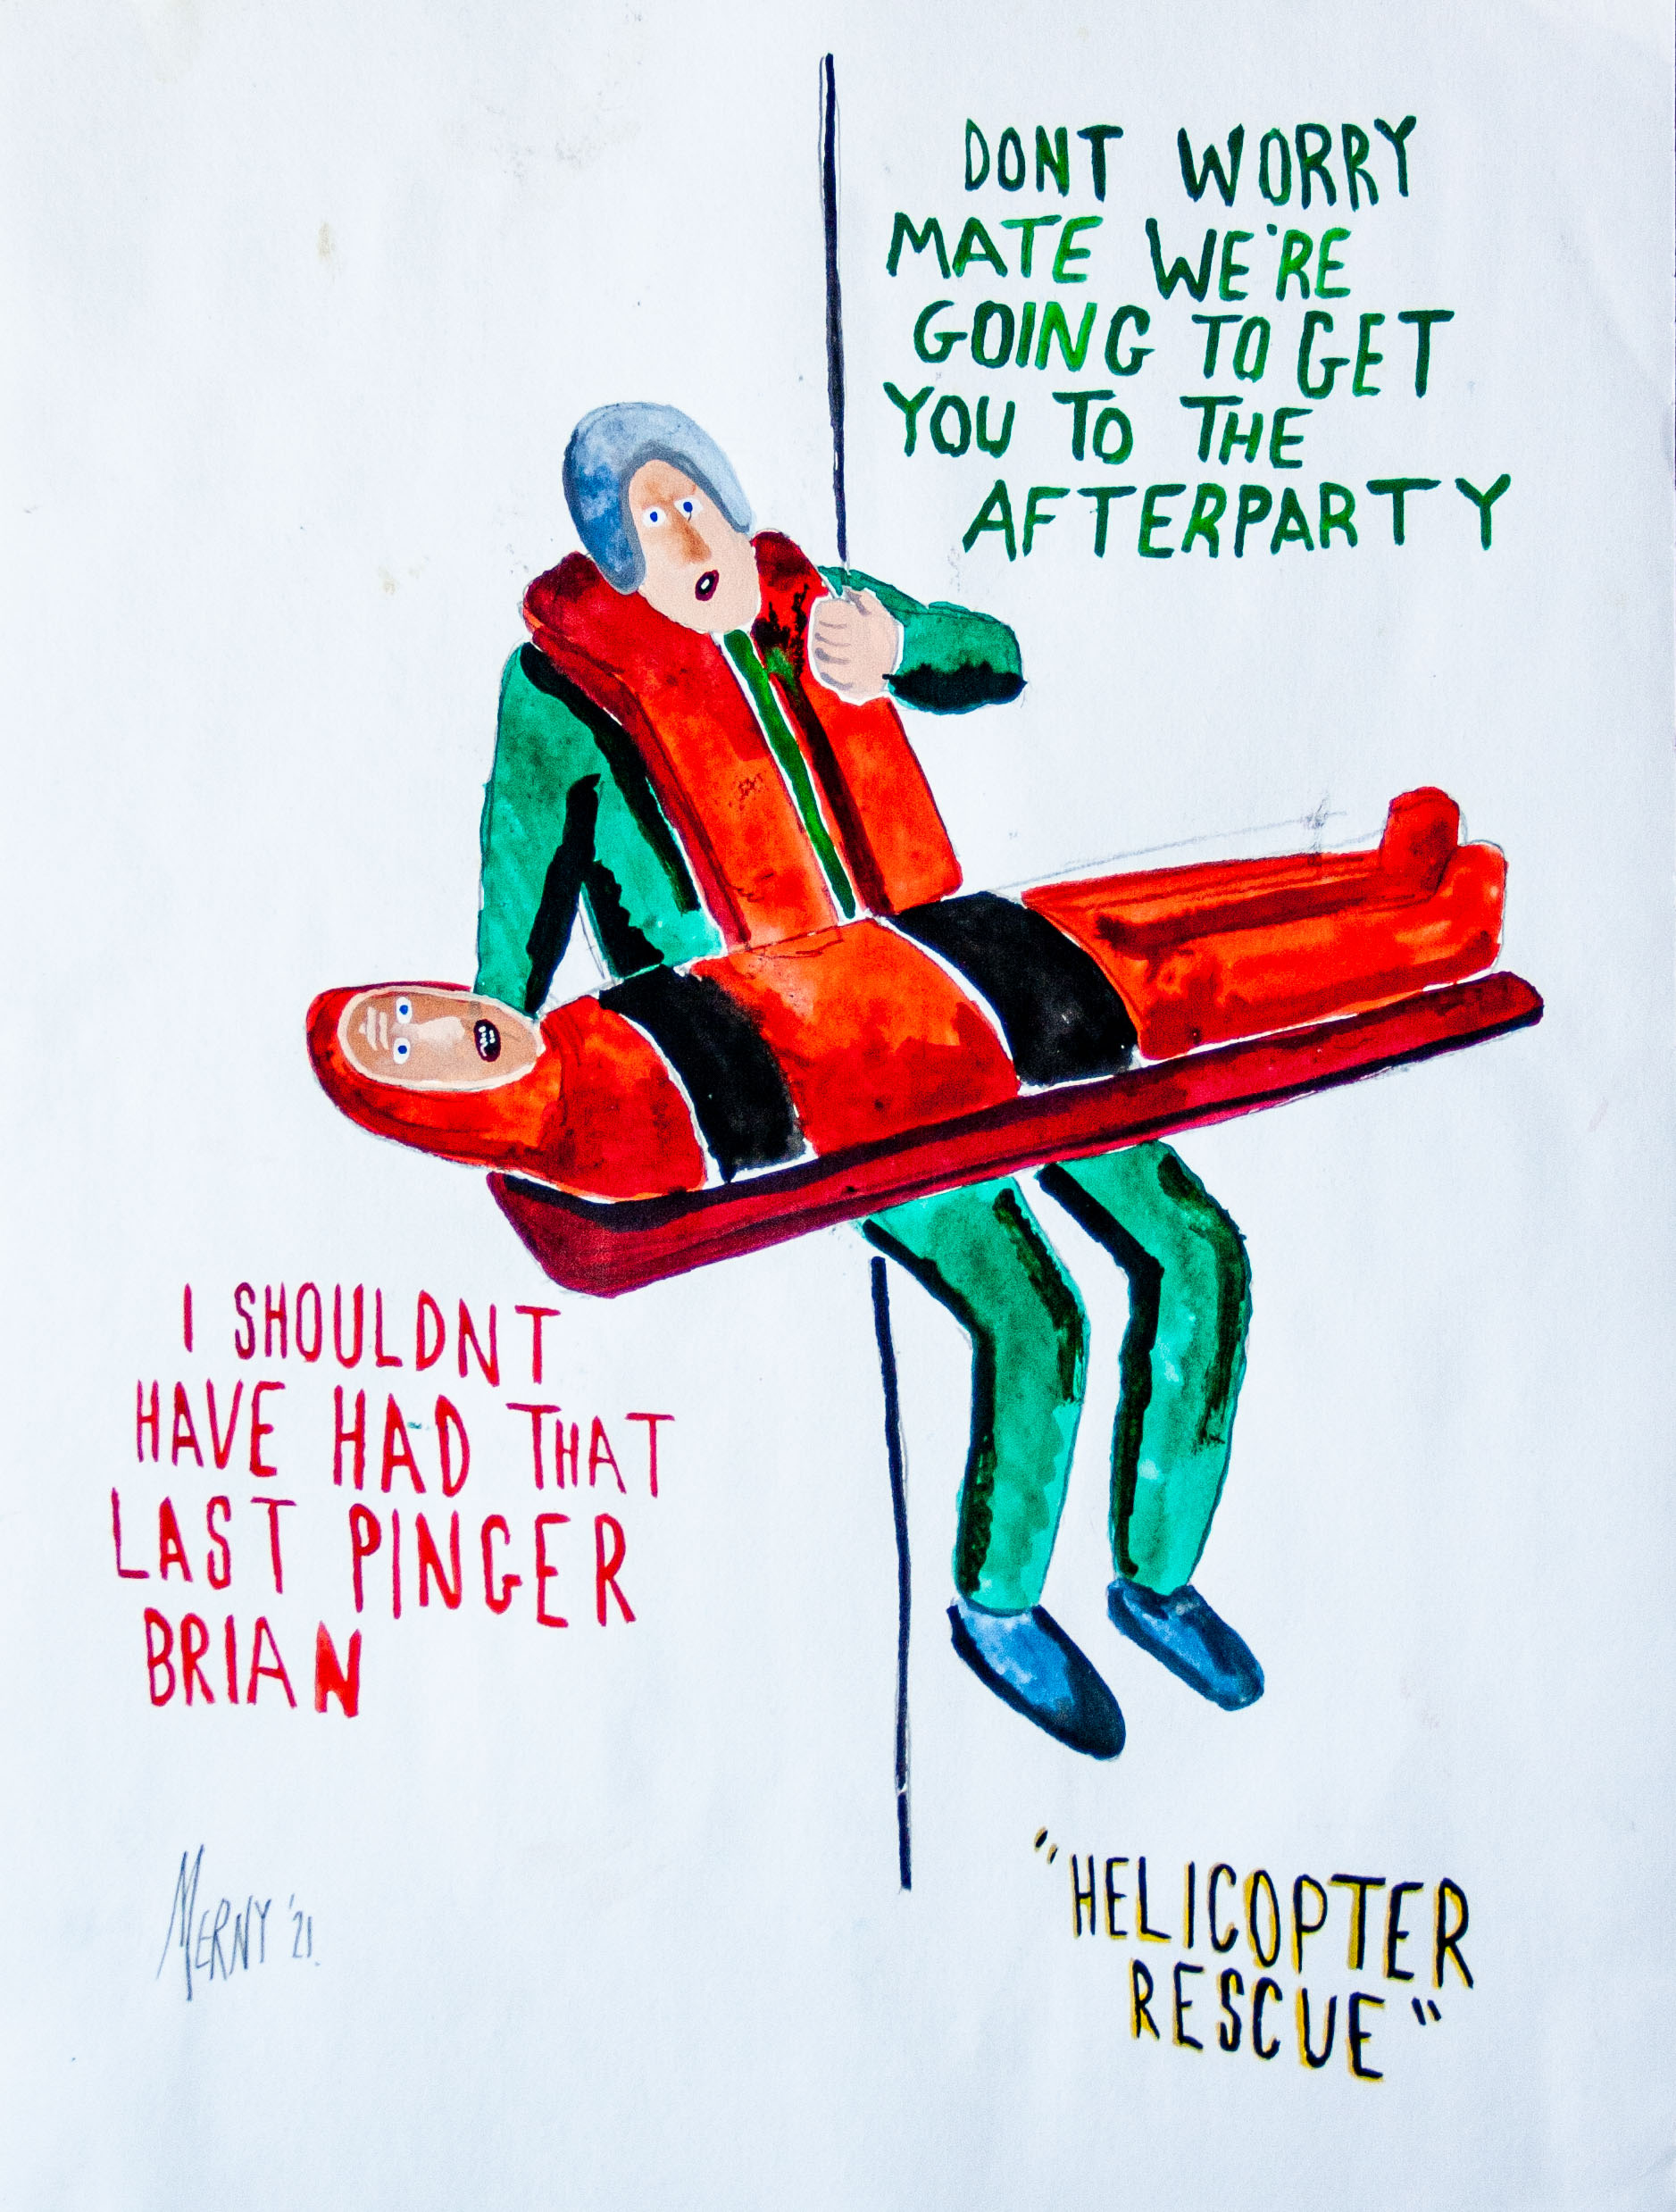 DONT WORRY
MATE WE'RE
GOING TO GET
YOU TO THE
AFTERPARTY
I SHOULDNT
HAVE HAD THAT
LAST PINGER
BRIAN
MERNY '21.
"HELICOPTER
RESCUE"